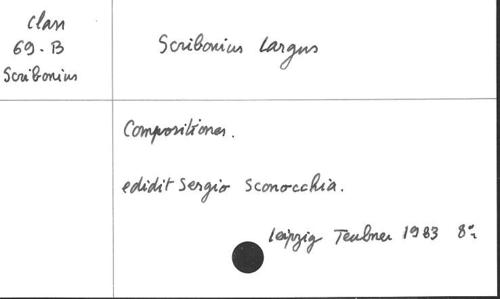 Clas
69.B
Scribonius
Scribonius Largus
Compositiones.
edidit Sergio Sconocchia.
Leipzig Teubner 1983 8°